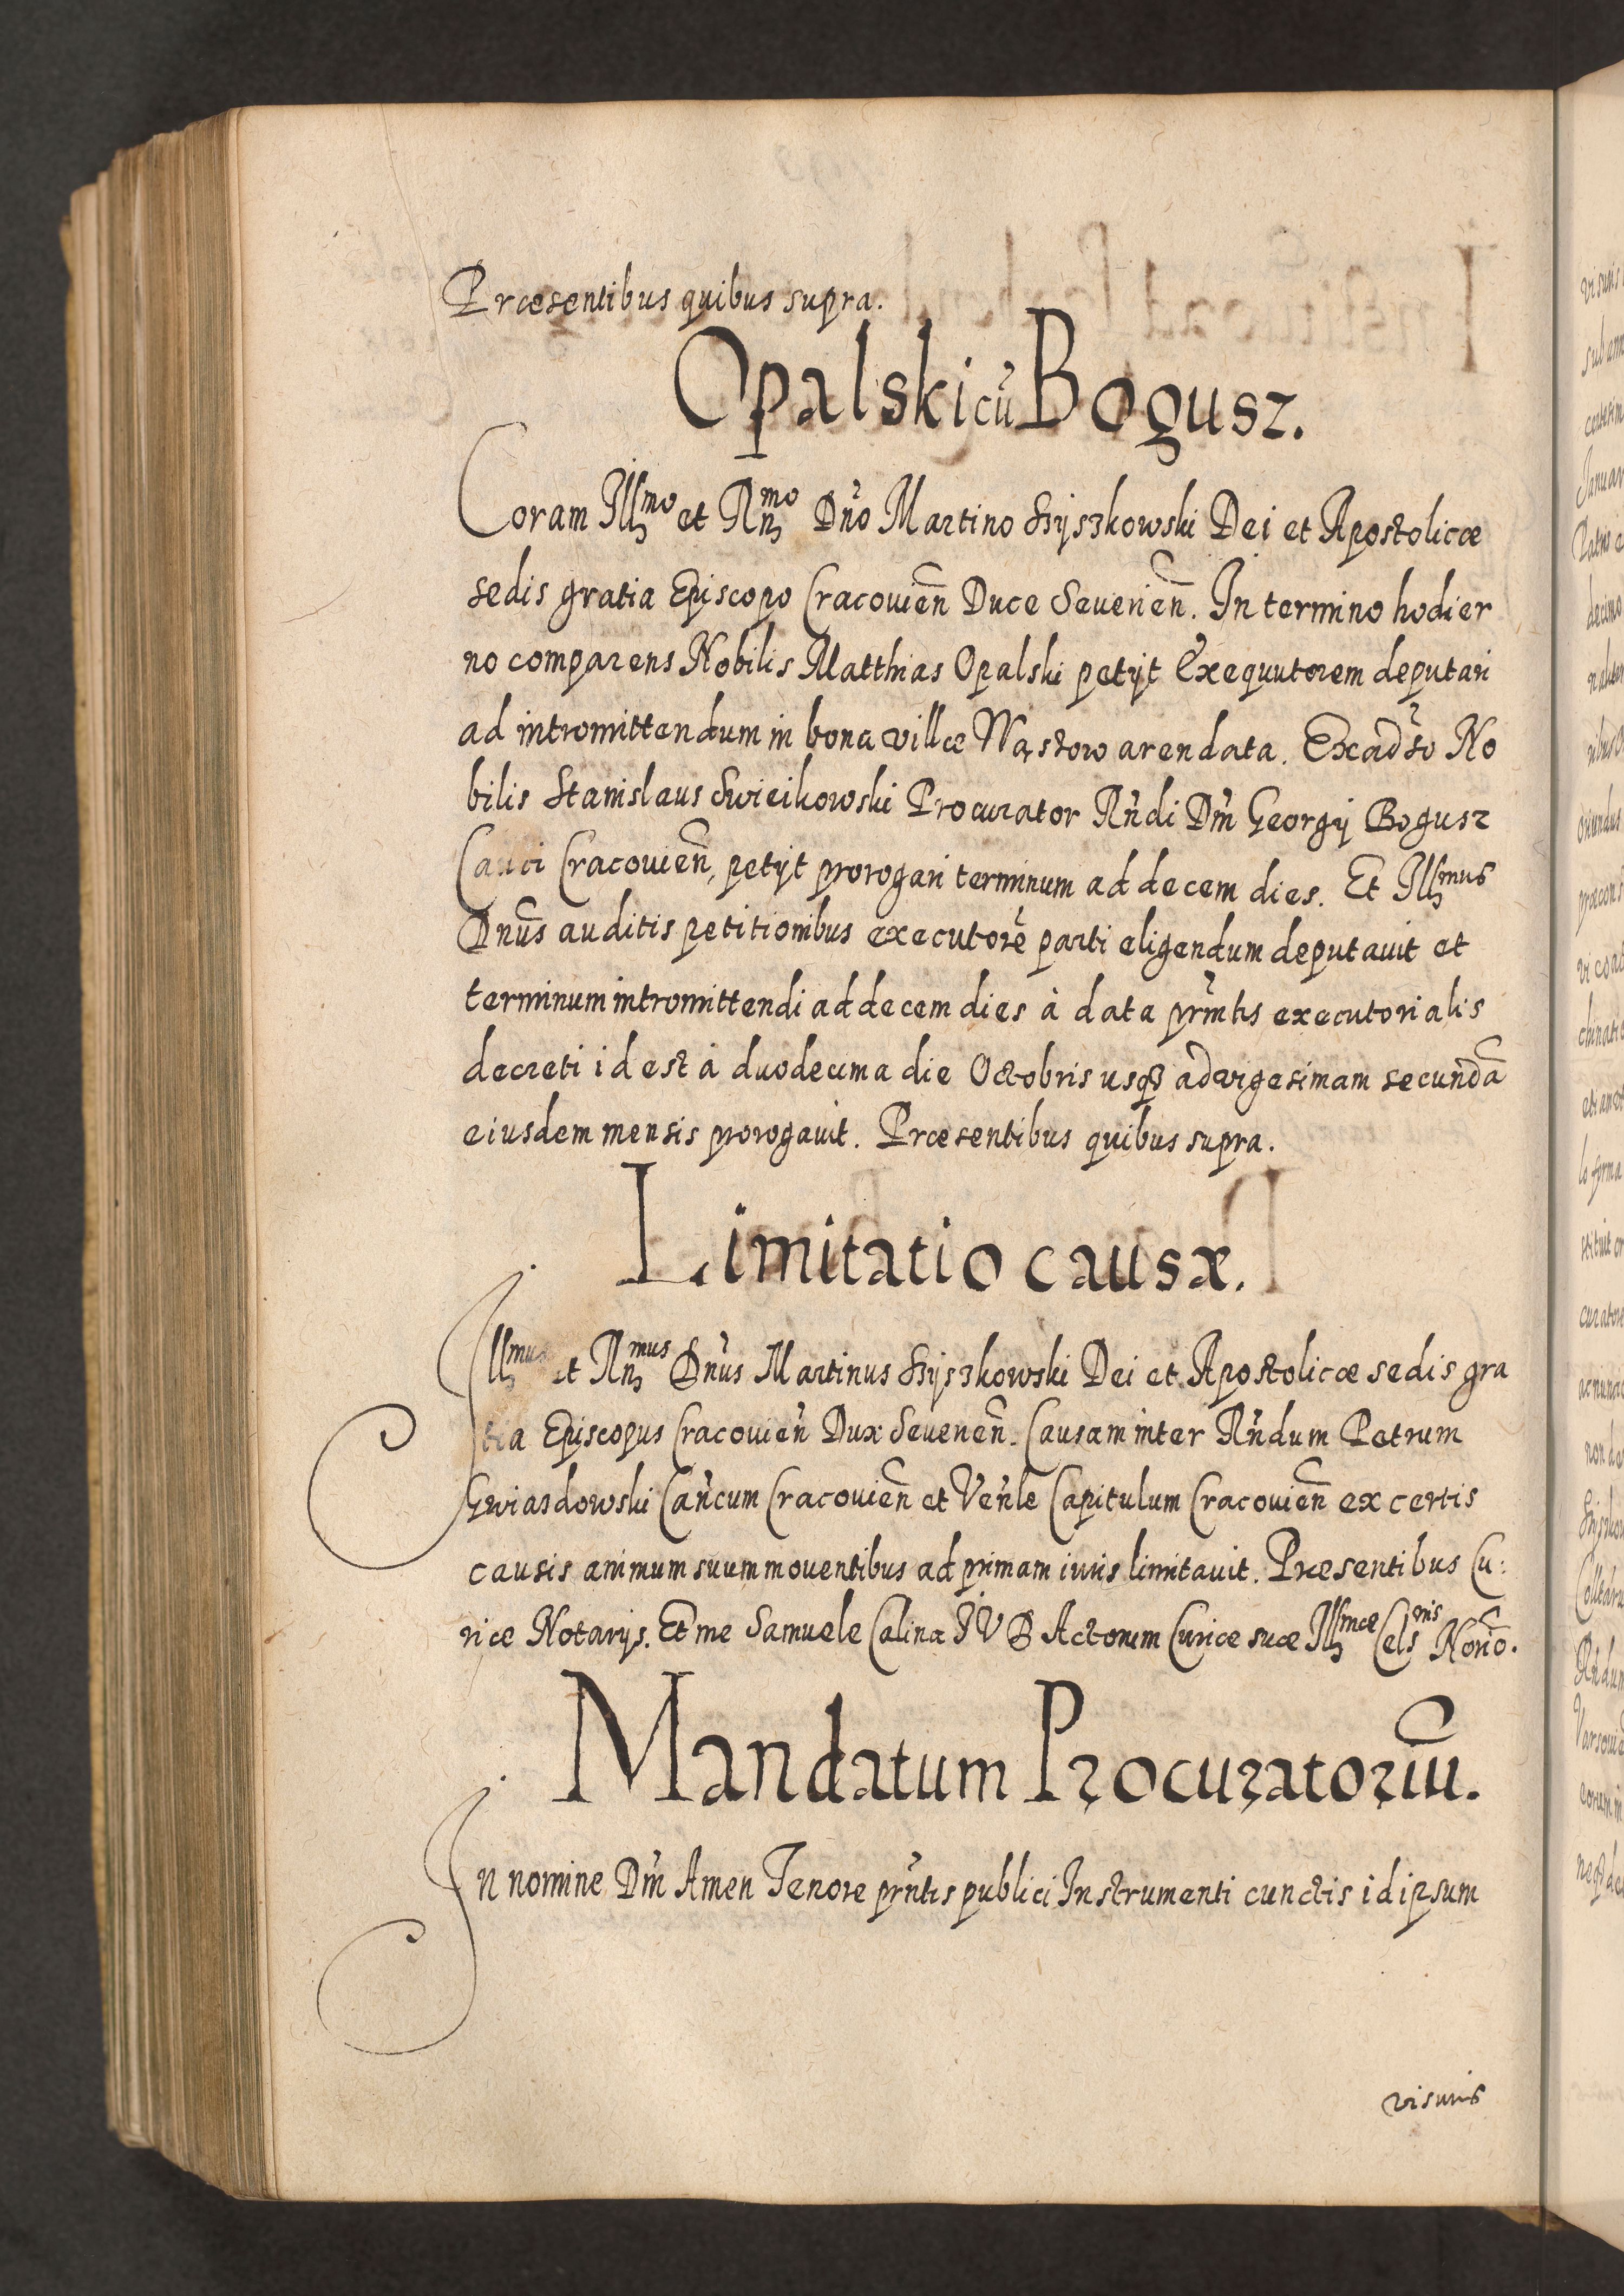 Præsentibus quibus supra.
Opalski cū Bogusz.
Coram Illmo et Rnmo Dño Martino Szyszkowski Dei et Apostolicæ
sedis gratia Episcopo Cracovieñ Duce Severieñ. In termino hodier
no comparens Nobilis Matthias Opalski petijt Exequutorem deputari
ad intromittendum in bona villæ Wąstow arendata. Ex adso No
bilis Stanislaus Swieikowski Procurator Rñdi Dñi Georgij Bogusz
Canci Cracovieñ, petijt prorogari terminum ad decem dies. Et Illmus
Dnus auditis petitionibus executorē parti eligendum deputavit et
terminum intromittendi ad decem dies à data prñtis executorialis
decreti id est à duodecima die Octobris usq ad vigesimam secundā
eiusdem mensis prorogavit. Præsentibus quibus supra.
Limitatio causæ.
Illmus et Rnmus Dñus Martinus Szyszkowski Dei et Apostolicæ sedis gra
tia Episcopus Cracovieñ Dux Severieñ. Causam inter Rñdum Petrum
Gwiazdowski Cañcum Cracovieñ et Veñle Capitulum Cracovieñ ex certis
causis animum suum moventibus ad primam iuris limitavit. Præsentibus Cu:
riæ Notarijs. Et me Samuele Calina IVD Actorum Curiæ suæ Illmæ Celsnis Norio.
Mandatum Procuratoriū.
In nomine Dñi Amen Tenore prñtis publici Instrumenti cunctis id ipsum
visuris